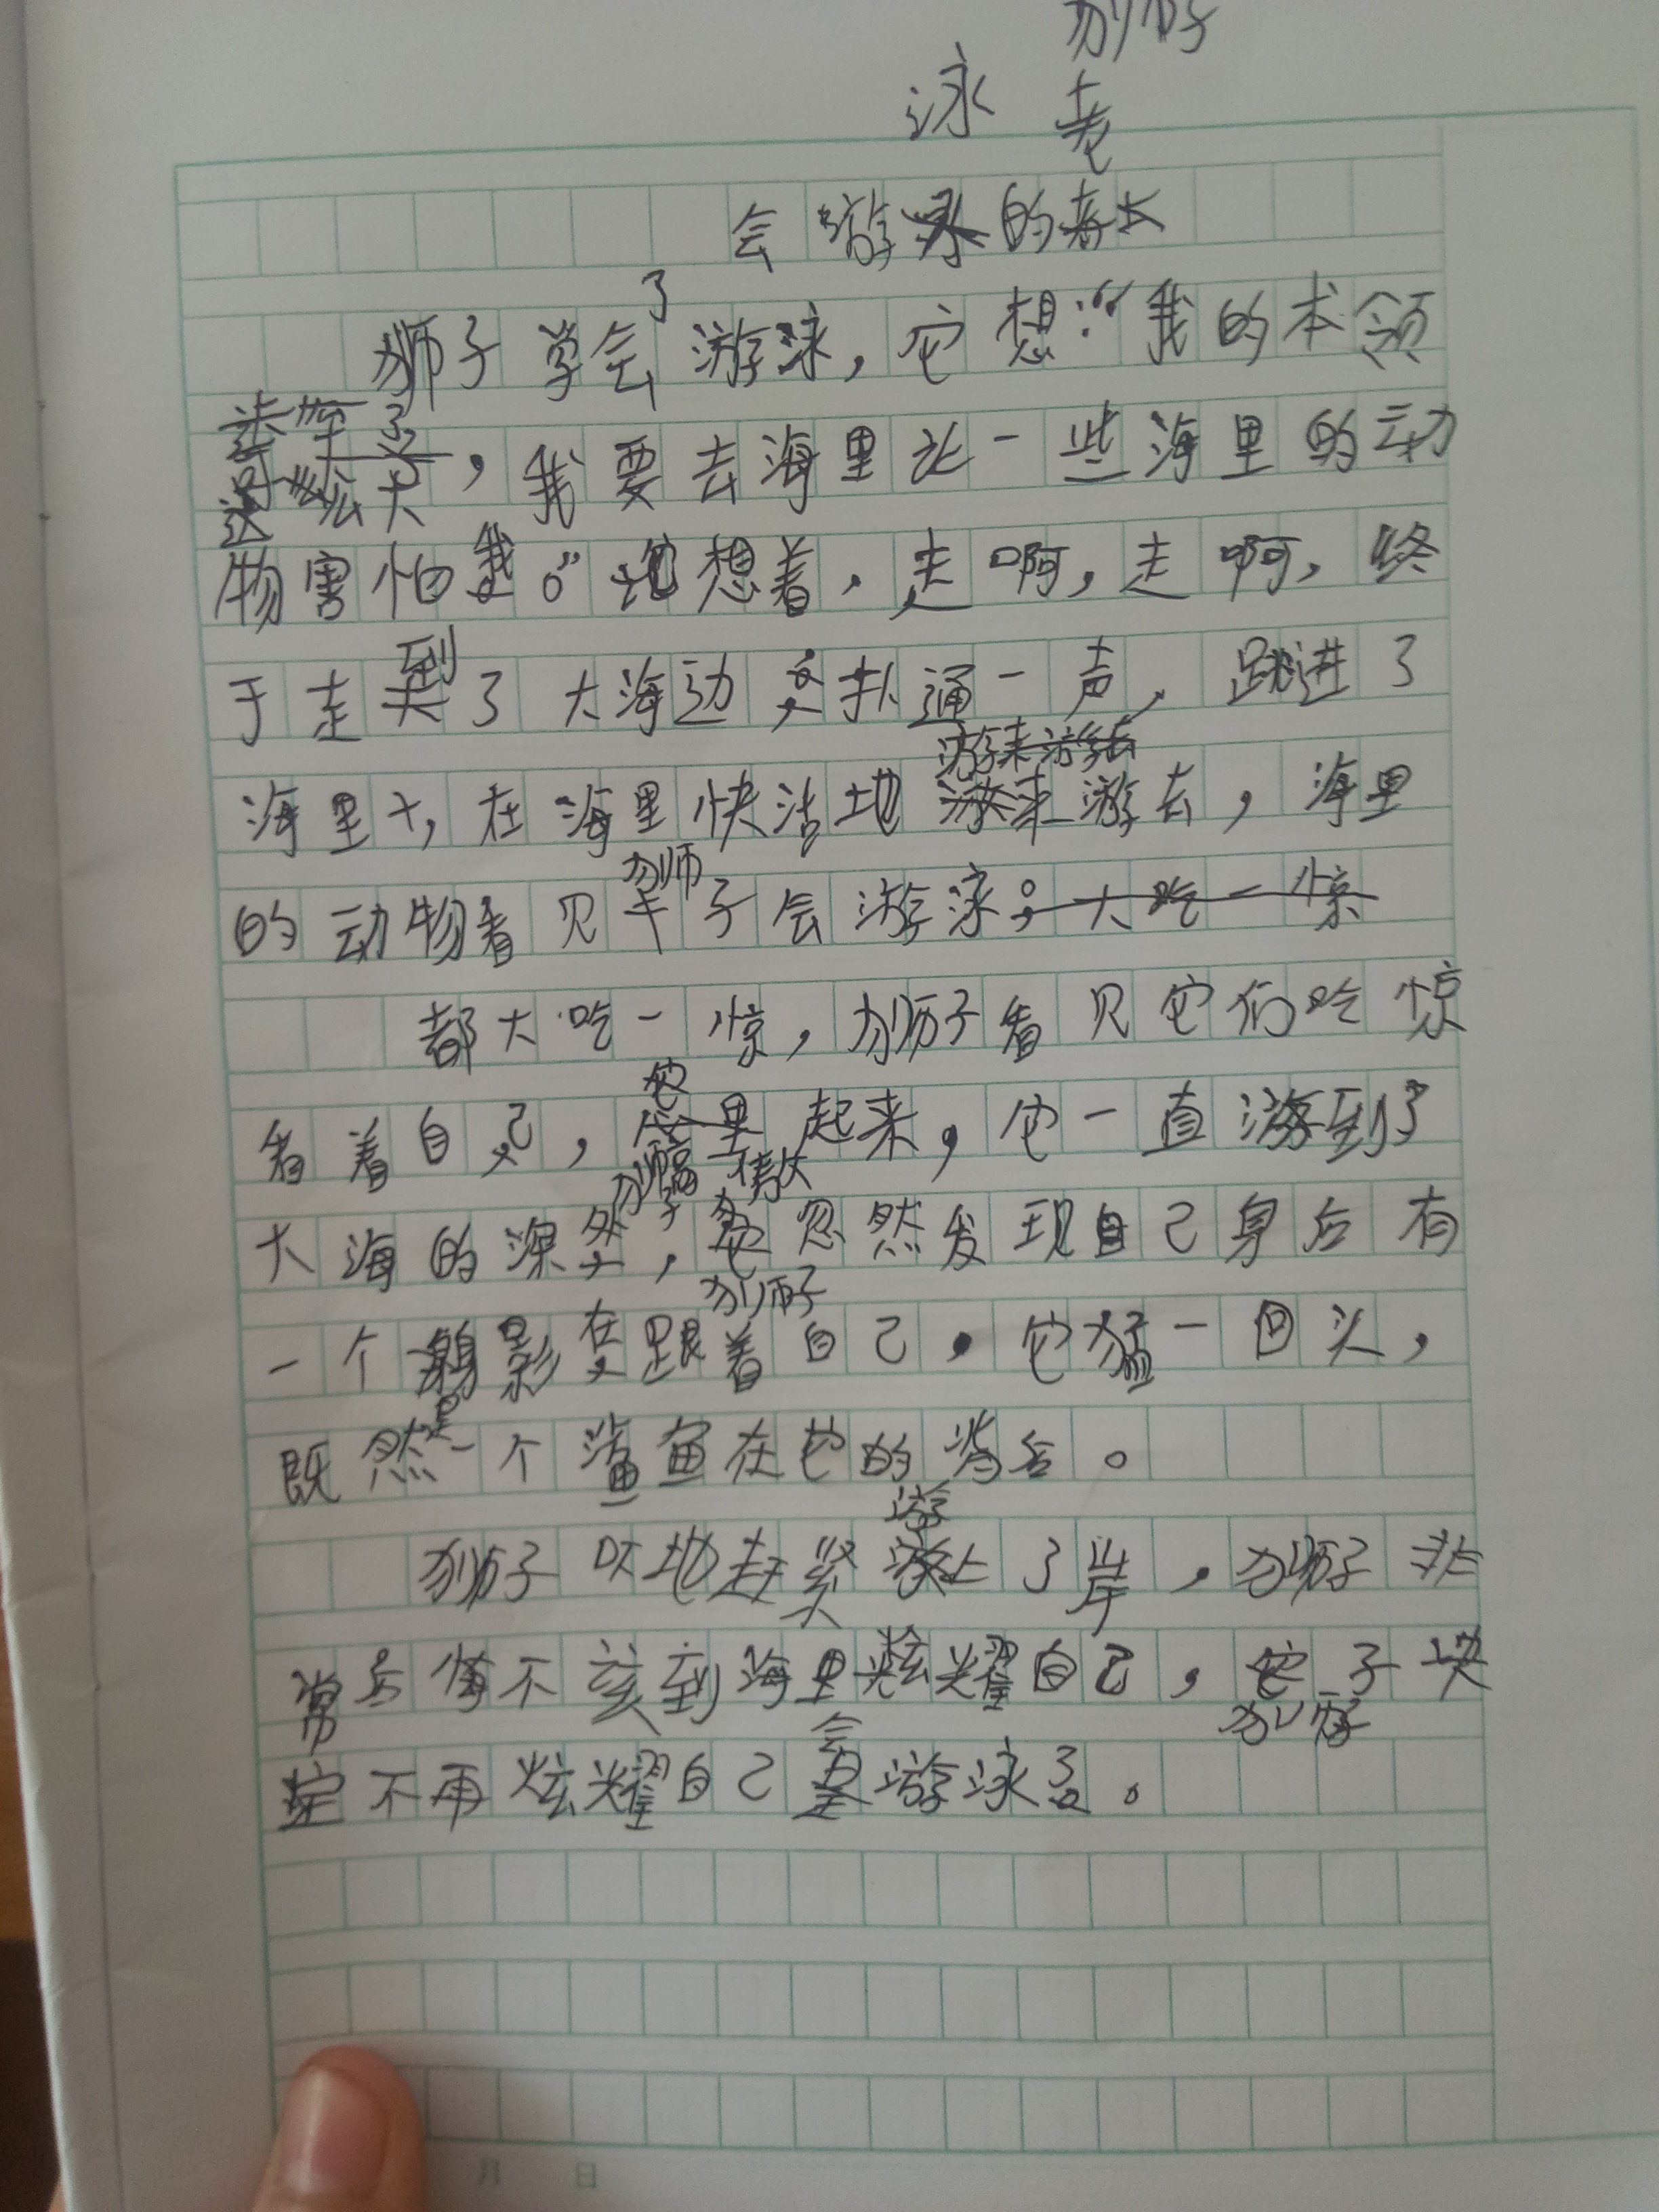 狮子
泳
会游的
狮子学会了游泳，它想：“我的本领
这么大，我要去海里让一些海里的动
物害怕我。”他想着，走啊，走啊，终
于走到了大海边，扑通一声，跳进了
海里，在海里快活地游来游去，海里
的动物看见狮子会游泳。大吃一惊
都大吃一惊，狮子看见它们吃惊
看着自己，他骄傲起来，他一直游到了
大海的深处，狮子忽然发现自己身后有
一个身影在跟着自己，他猛一回头，
既然是一个鲨鱼在它的背后。
狮子吓地赶紧游上了岸，狮子非
常后悔不该到海里炫耀自己，狮子决
定不再炫耀自己会游泳了。
月 日